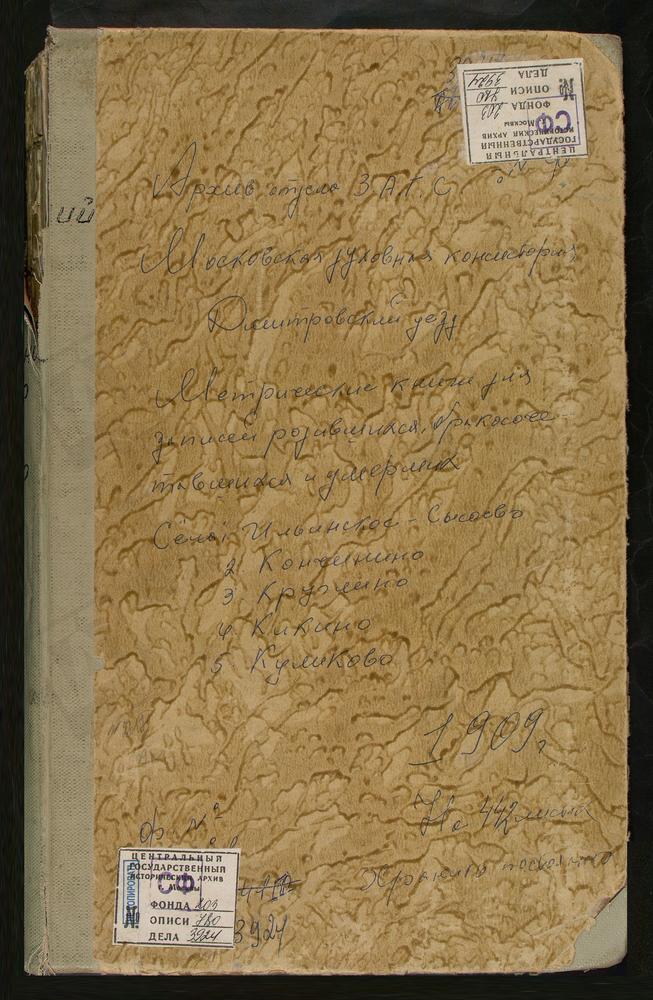 ЦЕНТРАЛЬНЫЙ
ГОСУДАРСТВЕННЫЙ
ИСТОРИЧЕСКИЙ АРХИВ
г. Москвы
СФ
ФОНДА 203
№ ОПИСИ 780
ДЕЛА 3924
ий
Архив отдела ЗАГС
Московская духовная консистория
Дмитровский уезд
Метрические книги для
записей родившихся, бракосоче-
тавшихся и умерших
Сёла: Ильинское - Сысоево
2 Кончинино
3 Круглино
4 Кикино
5 Куликово
1909 г
На 442 листах
Хранить постоянно
ф. №
ЦЕНТРАЛЬНЫЙ
ГОСУДАРСТВЕННЫЙ
ИСТОРИЧЕСКИЙ АРХИВ
г. Москвы
СФ
ФОНДА 203
№ ОПИСИ 780
ДЕЛА 3924
3924